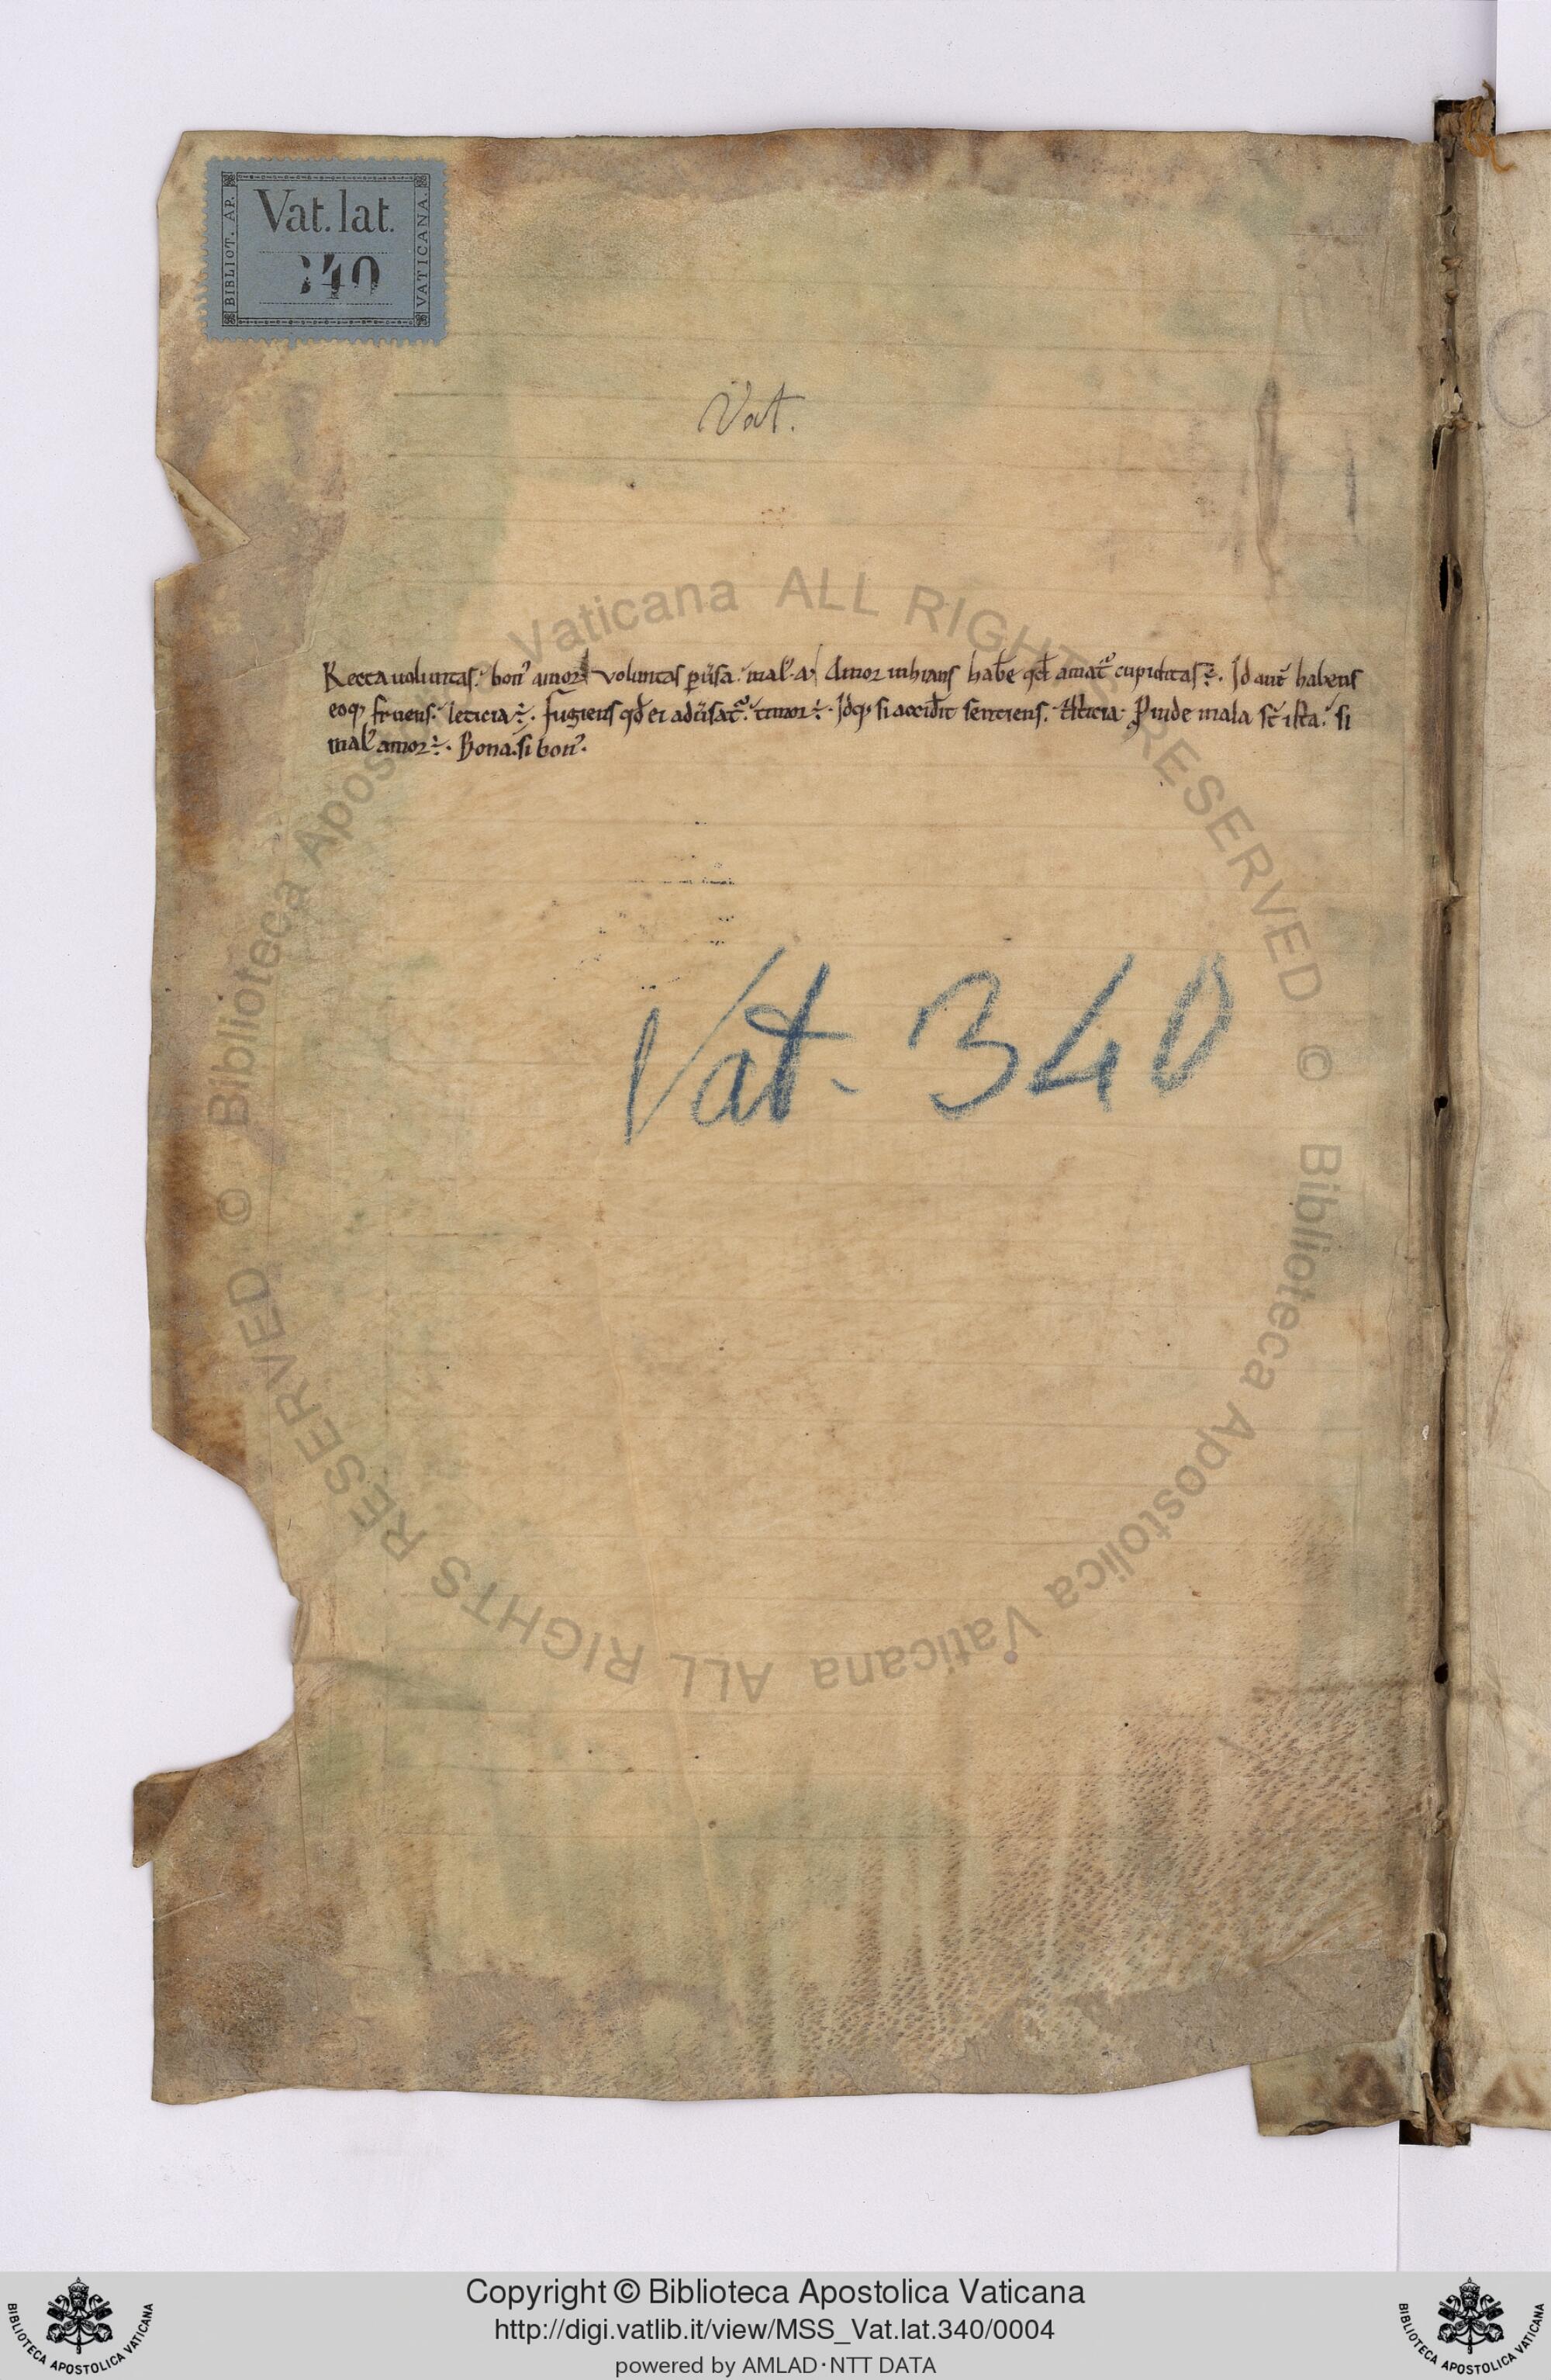 BIBLIOT. AP. VATICANA.
Vat. lat.
340
Vat.
Recta uoluntas. bonꝰ amor voluntas puͥsa. malꝰ a. Amor inhians haƀe qđ amat᷑ cupiditas ÷. Id aut̄ habens
eoq; fruens. leticia ÷. fugiens qđ ei aduͥsat᷑. timor ÷. Idq; si acciđit sentiens. tͥsticia. Ꝓinde mala st̄ ista. si
malꝰ amor ÷. Bona. si bonꝰ.
Vat. 340
© Biblioteca Apostolica Vaticana ALL RIGHTS RESERVED
© Biblioteca Apostolica Vaticana ALL RIGHTS RESERVED
Copyright © Biblioteca Apostolica Vaticana
http://digi.vatlib.it/view/MSS_Vat.lat.340/0004
powered by AMLAD·NTT DATA
BIBLIOTECA APOSTOLICA VATICANA
BIBLIOTECA APOSTOLICA VATICANA